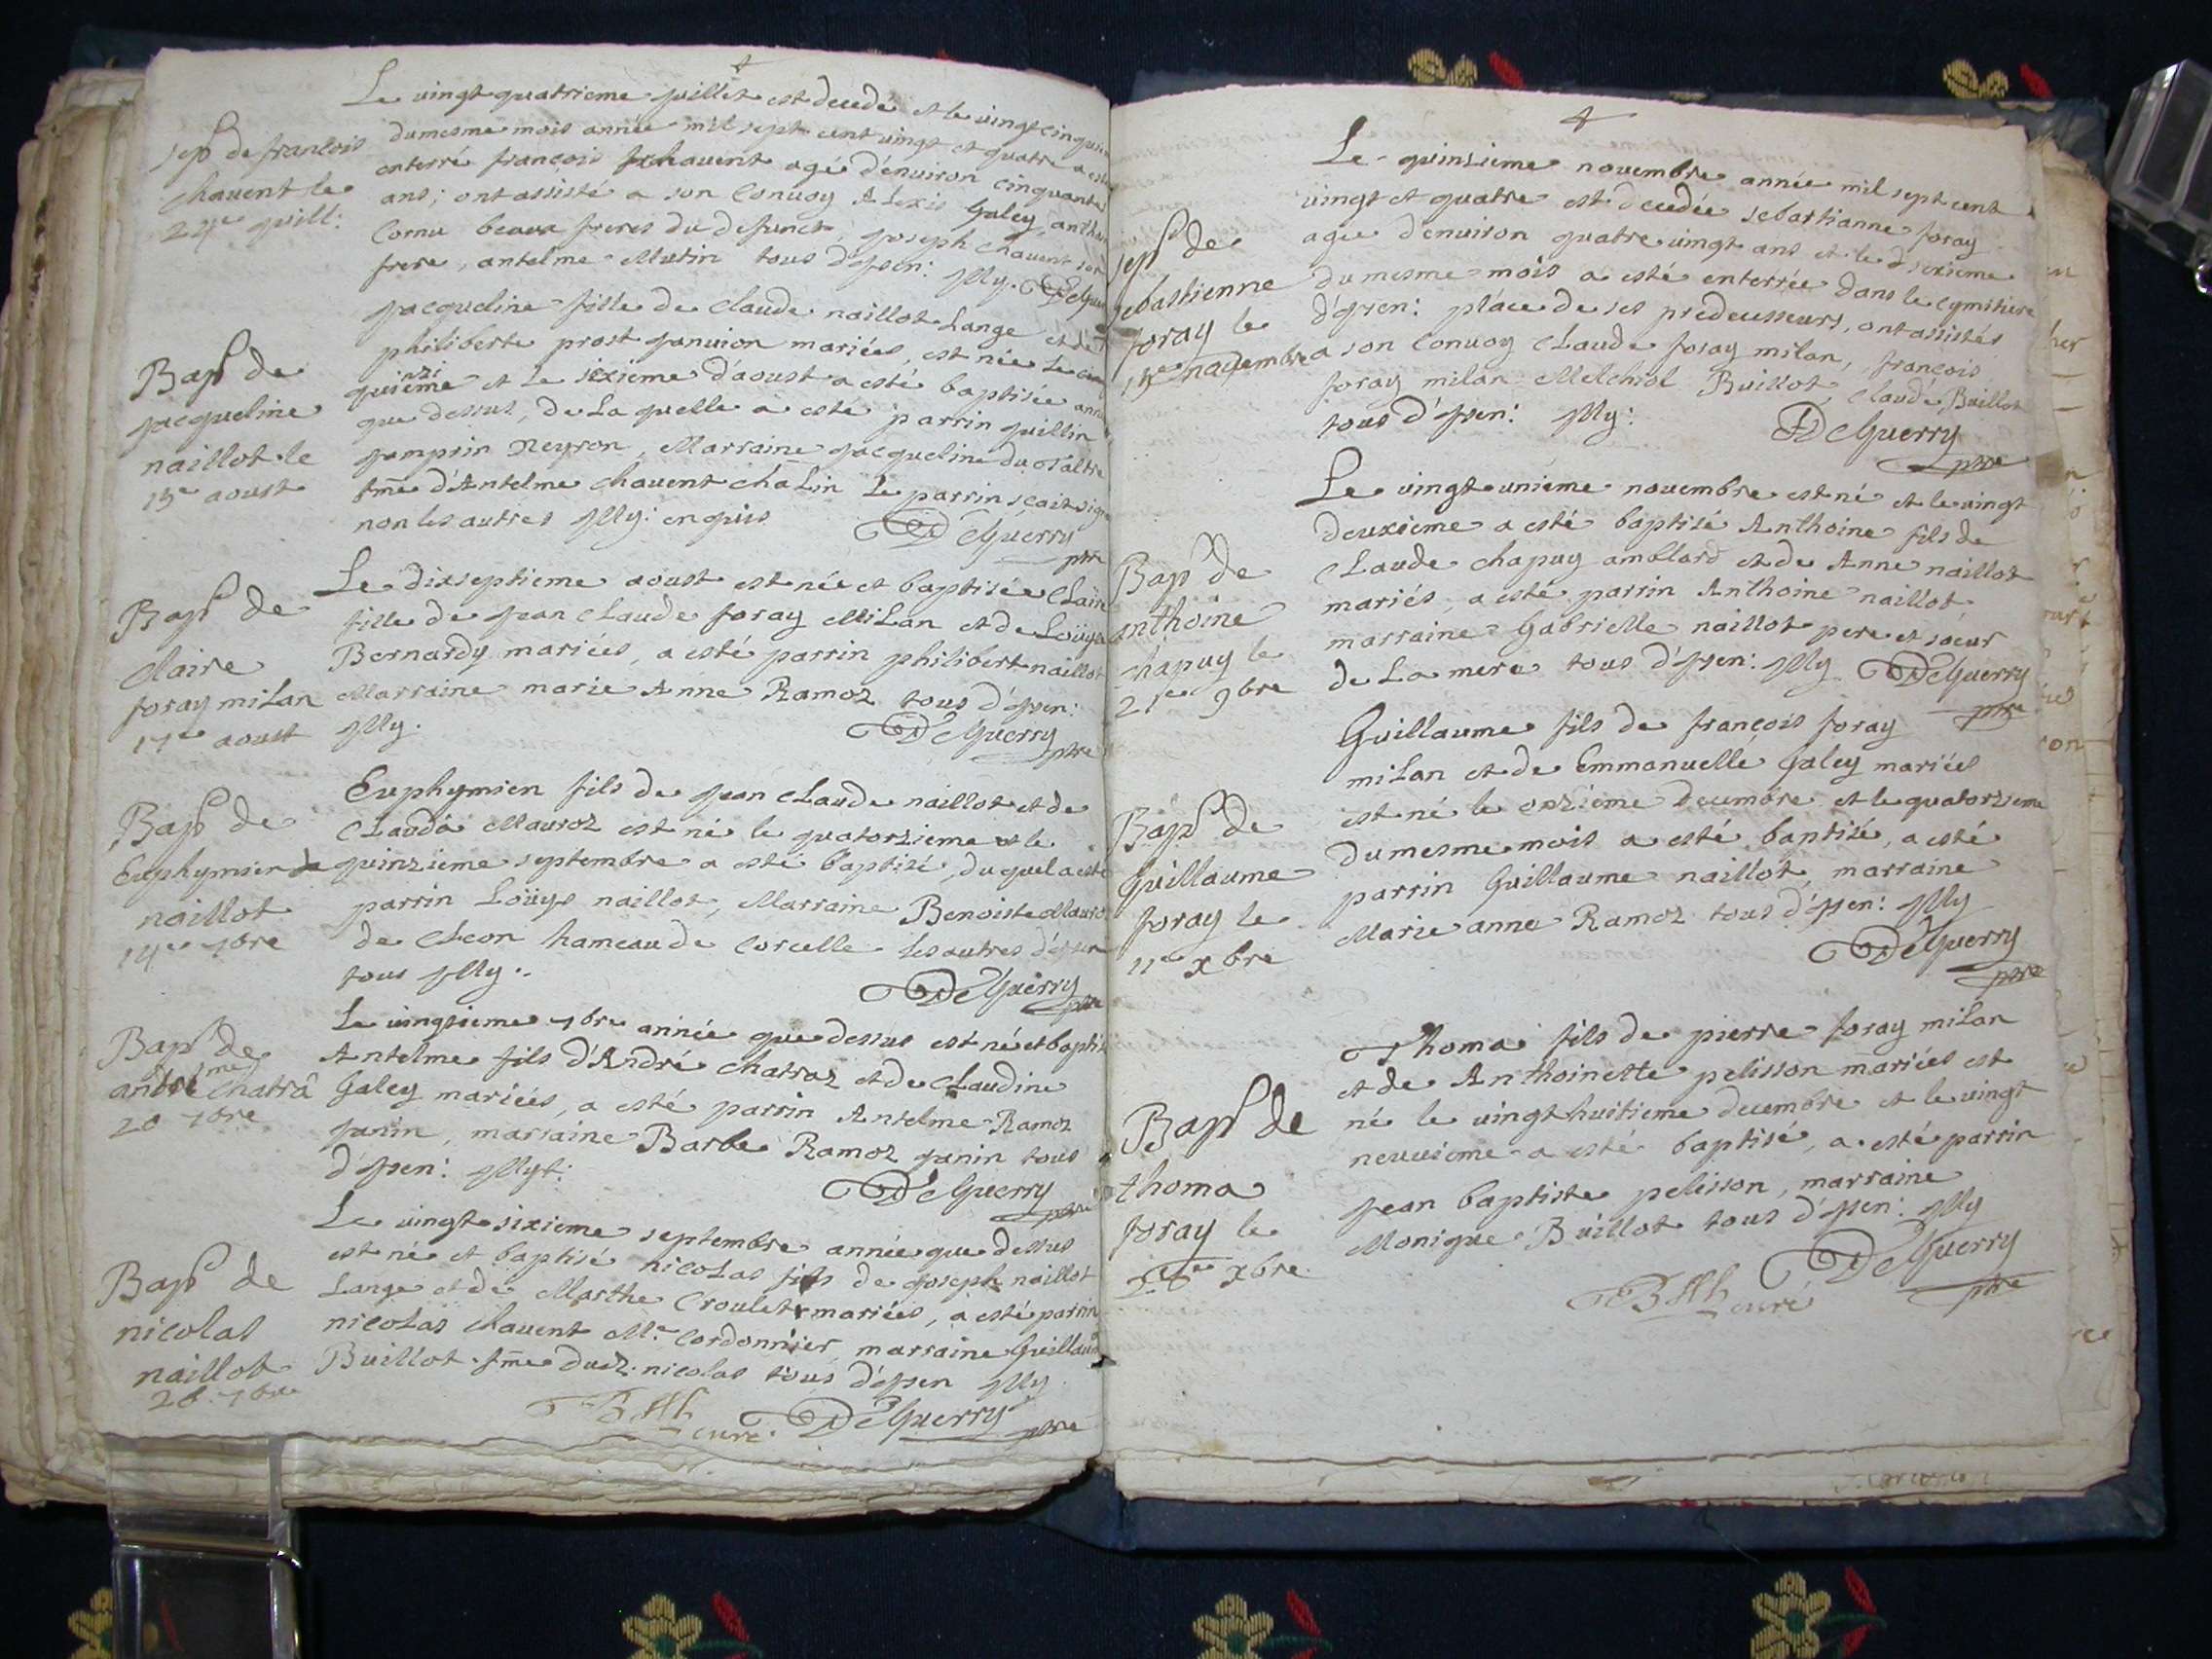 Le vingt quatrieme juillet est decedé et le vingt cinquieme
sep^r de francois
chavent le
24^e juill:
du mesme mois année mil sept cent vingt et quatre a esté
enterré françois chavent agé d'environ cinquante
ans; ont assisté a son convoy Alexis Galey, anth
Cornu beaux freres du defunct, joseph chavent son
frere, antelme Mutin tous d'jzen: jlly. DeGuerry
Bap^t de
jacqueline
naillot le
15^e aoust
jacqueline fille de claude naillot Lange et de
philiberte prost janvion mariées, est née le
quinzieme et le sixieme d'aoust a esté baptisée année
que dessus, de Laquelle a esté parrin guillin
jomprin Neyron, Marraine jacqueline du
fme d'Antelme chavent chalin Le parrin scait signer
non les autres jlly: enquis
DeGuerry
ptre
Bap^t de
claire
foray milan
17^e aoust
Le dixseptieme aoust est née et baptisée Claire
fille de jean claude foray Milan et de Loüyse
Bernardy mariées, a esté parrin philibert naillot
Marraine marie Anne Ramoz tous d'jzen:
jlly.
DeGuerry
ptre
Bap^t de
Euphymien de
naillot
14^e 7bre
Euphymien fils de jean claude naillot et de
Claudâ Mauroz est né le quatorzieme et le
quinzieme septembre a esté baptisé, duquel a esté
parrin Loüys naillot, Marraine Benoiste Mauroz
de Cleon hameau de Corcelle Les autres d'jzen
tous jlly.
DeGuerry
ptre
Bap^t de
antelme chatrâ
20 7bre
Le vingtieme 7bre année que dessus est né et baptisé
Antelme fils d'André chatroz et de claudine
Galey mariées, a esté parrin Antelme Ramoz
janin, marraine Barbe Ramoz janin tous
d'jzen: jllyt:
DeGuerry
ptre
Bap^t de
nicolas
naillot
26 7bre
Le vingt sixieme septembre année que dessus
est né et baptisé nicolas fils de joseph naillot
Lange et de Marthe Croulet mariées, a esté parrin
nicolas chavent M^e Cordonnier, marraine Guillaume
Buillot fme dud. nicolas tous d'jzen jlly.
curé. DeGuerry
ptre

4
sep^r de
sebastienne
foray le
15^e novembre
Le quinzieme novembre année mil sept cent
vingt et quatre est decedée sebastianne foray
agée d'environ quatre vingt ans et le seixieme
du mesme mois a esté enterrée dans le cymitiere
d'jzen: place de ses predecesseurs, ont assistés
a son convoy Claude foray milan, françois
foray milan Melchiol Buillot, claude Buillot
tous d'jzen: jlly:
DeGuerry
ptre
Bap^t de
Anthoine
chapuy le
21^e 9bre
Le vingt unieme novembre est né et le vingt
deuxieme a esté baptisé Anthoine fils de
Claude chapuy amblard et de Anne naillot
mariés, a esté parrin Anthoine naillot
marraine Gabrielle naillot pere et soeur
de La mere tous d'jzen: jlly DeGuerry
ptre
Bap^t de
Guillaume
foray le
11^e xbre
Guillaume fils de françois foray
milan et de Emmanuelle Galey mariées
est né le onzieme decembre et le quatorzieme
du mesme mois a esté baptisé, a esté
parrin Guillaume naillot, marraine
Marie anne Ramoz tous d'jzen: jlly
DeGuerry
ptre
Bap^t de
thoma
foray le
28^e xbre
Thoma fils de pierre foray milan
et de Anthoinette pelisson mariées est
né le vingt huitieme decembre et le vingt
neuvieme a esté baptisé, a esté parrin
jean baptiste pelisson, marraine
Monique Buillot tous d'jzen: jlly
DeGuerry
ptre
curé